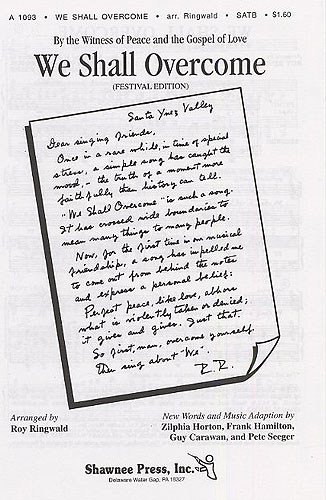 A 1093 • WE SHALL OVERCOME • arr. Ringwald • SATB • $1.60
By the Witness of Peace and the Gospel of Love
We Shall Overcome
(FESTIVAL EDITION)
Santa Ynez Valley
Dear singing friends,
Once in a rare while, in time of special
stress, a simple song has caught the
mood, – the truth of a moment more
faithfully than history can tell.
"We Shall Overcome" is such a song.
It has crossed wide boundaries to
mean many things to many people.
Now, for the first time in our musical
friendship, a song has impelled me
to come out from behind the notes
and express a personal belief:
Perfect peace, like love, abhors
what is violently taken or denied;
it gives and gives. Just that.
So first, man, overcome yourself.
Then sing about "We".
R. R.
Arranged by
Roy Ringwald
New Words and Music Adaption by
Zilphia Horton, Frank Hamilton,
Guy Carawan, and Pete Seeger
Shawnee Press, Inc.
Delaware Water Gap, PA 18327